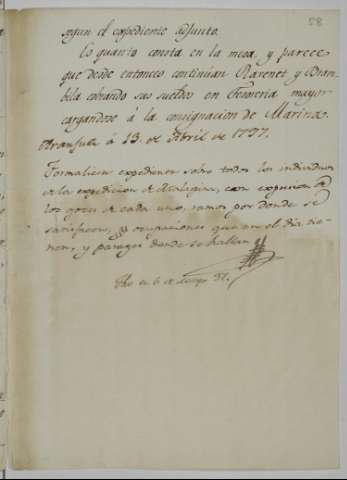 58
segun el expediente adjunto.
Es quanto consta en la mesa, y parece
que desde entonces continúan Ravenet y Bram-
bila cobrando sus sueldos en Tesorería mayor
cargandose á la consignacion de Marina.
Aranjuez á 13. de Abril de 1797.
Formalicese expediente sobre todos los individuos
de la expedicion de Malaspina, con expresion de
los goces de cada uno, ramos por donde se
satisfacen, y ocupaciones que en el dia tie-
nen, y parages donde se hallan
fho en 6 de